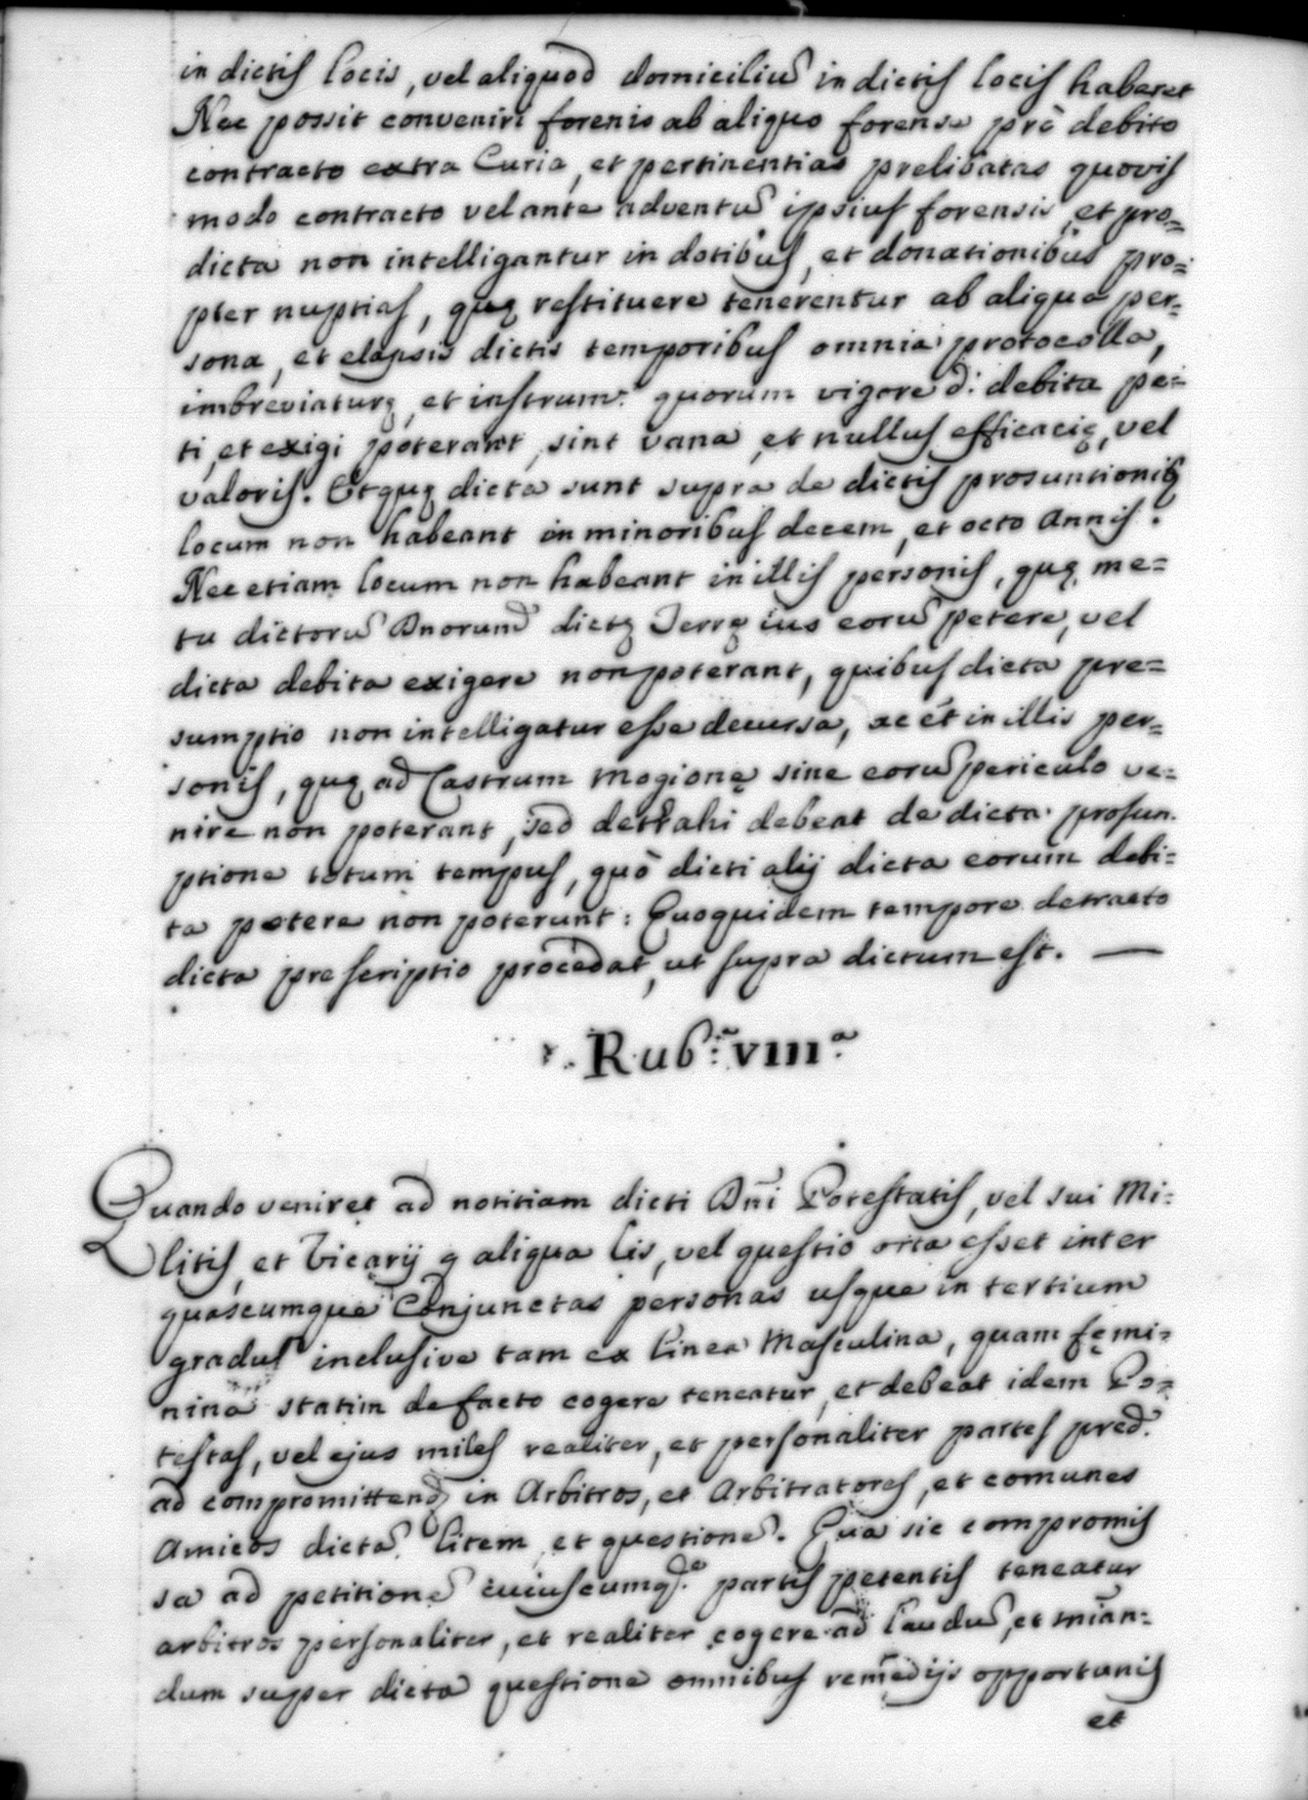 in dictis locis, vel aliquod domiciliũ in dictis locis haberet
Nec possit conveniri forenis ab aliquo forense prò debito
contracto extra Curia, et pertinentias prelibatas quovis
modo contracto vel ante adventũ ipsius forensis, et pro=
dicta non intelligantur in dotibus, et donationibus pro=
pter nuptias, quę restituere tenerentur ab aliqua per=
sona, et elapsis dictis temporibus omnia protocolla,
imbreviaturę, et instrum: quorum vigore d: debita pe=
ti, et exigi poterant, sint vana, et nullus efficacię, vel
valoris. Et quę dicta sunt supra de dictis prosuntionibȝ
locum non habeant in minoribus decem, et octo Annis.
Nec etiam locum non habeant in illis personis, quę me=
tu dictorũ Dnorum dictę Terrę ius eorũ petere, vel
dicta debita exigere non poterant, quibus dicta pre=
sumptio non intelligatur esse decursa, ac ét in illis per=
sonis, quę ad Castrum Mogionę sine eorũ periculo ve=
nire non poterant, sed detrahi debeat de dicta prosun=
ptione totum tempus, quò dicti alij dicta eorum debi=
ta petere non poterunt: Quoquidem tempore detracto
dicta prescriptio procedat, ut supra dictum est. —
Rub:ª VIIIª
Quando veniret ad notitiam dicti Dñi Potestatis, vel sui Mi=
litis, et Vicarij q aliqua lis, vel questio orta esset inter
quascumque Conjunctas personas usque in tertium
gradus inclusive tam ex linea Masculina, quam fęmi=
nina statim de facto cogere teneatur, et debeat idem Po=
testas, vel ejus miles realiter, et personaliter partes pred:
ad compromittendȝ in Arbitros, et Arbitratores, et comunes
Amicos dictã litem, et questionẽ. Qua sic compromis
sa ad petitionẽ cuiuscumq:ᵉ partis petentis teneatur
arbitros personaliter, et realiter cogere ad laudũ, et mañ=
dum super dicta questione omnibus remedijs opportunis
et